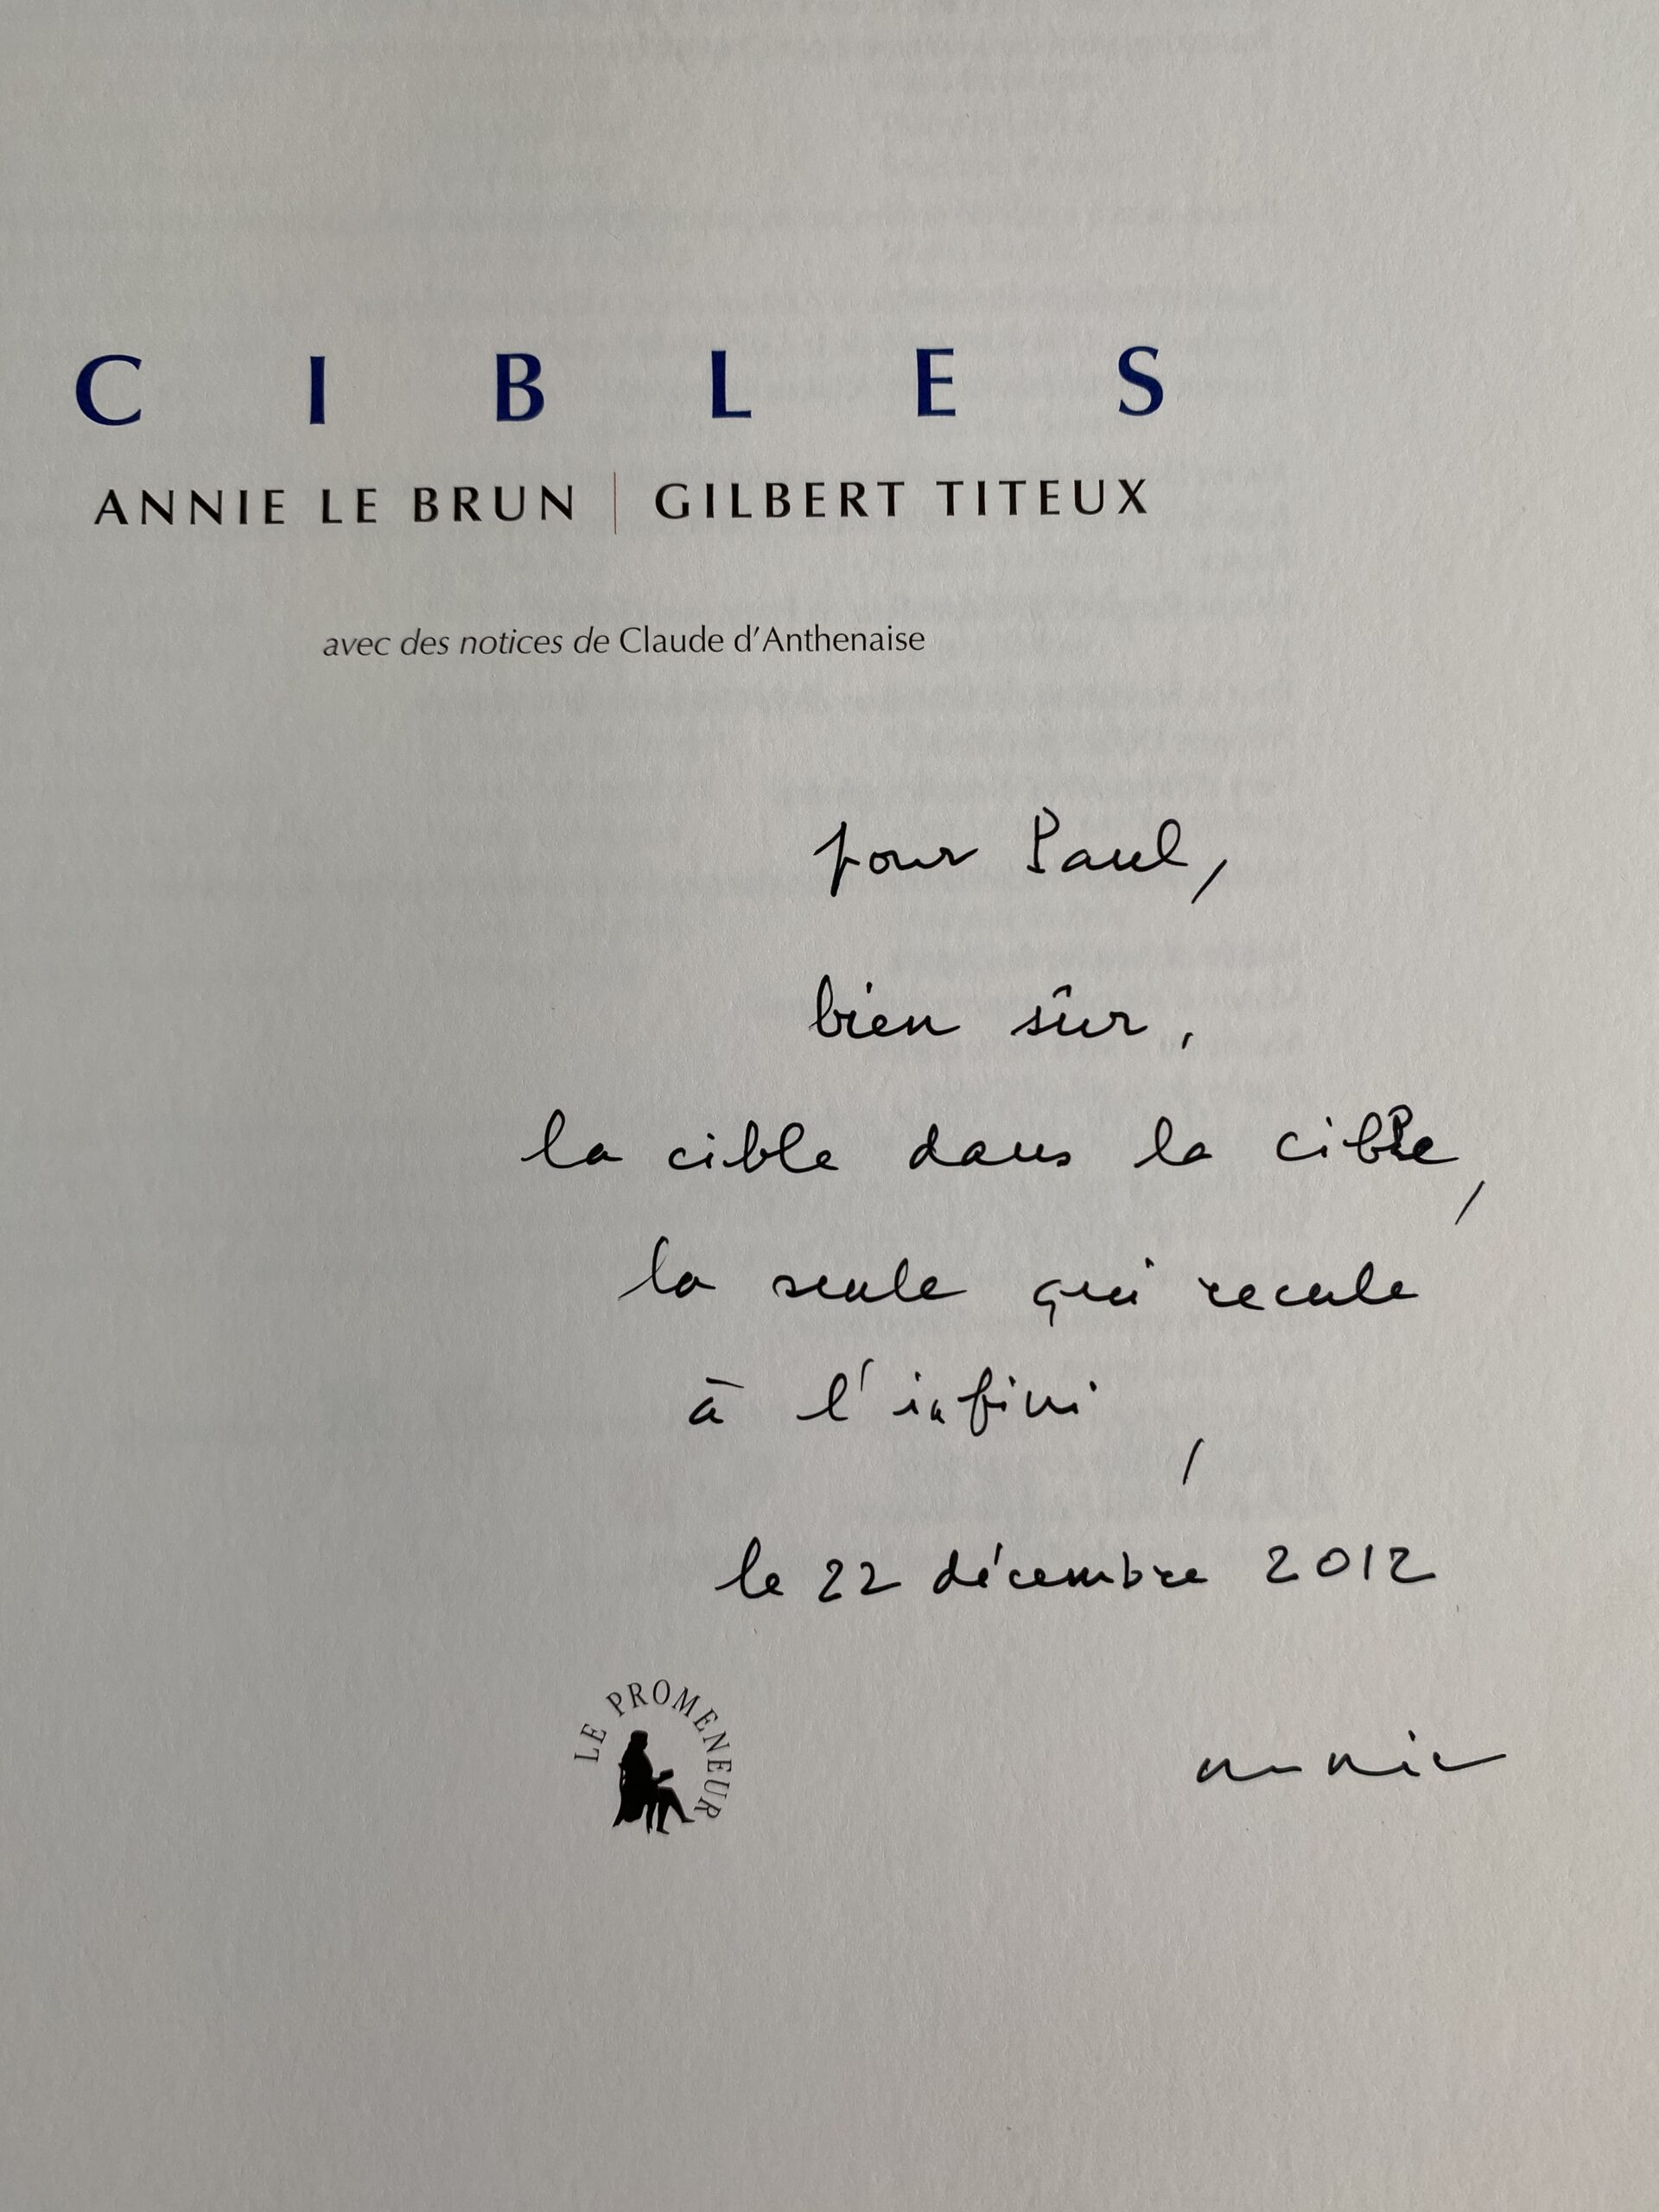 CIBLES
ANNIE LE BRUN | GILBERT TITEUX
avec des notices de Claude d'Anthenaise
pour Paul,
bien sûr,
la cible dans la cible,
la seule qui recule
à l'infini,
le 22 décembre 2012
LE PROMENEUR
annie